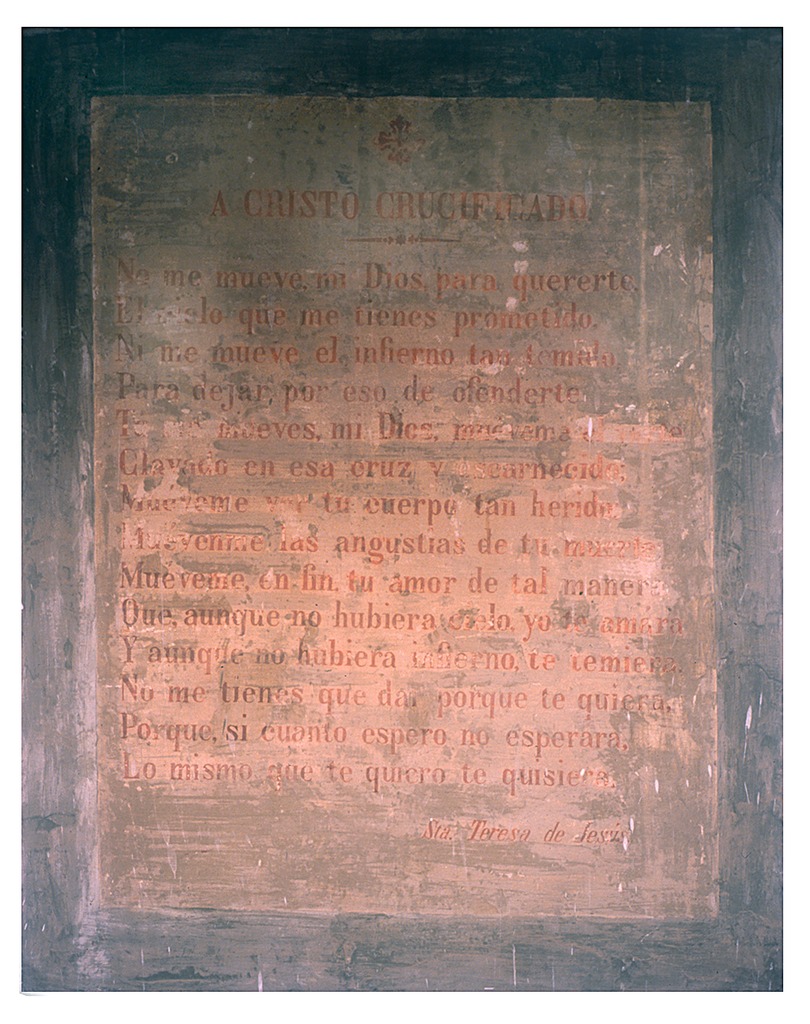 A CRISTO CRUCIFICADO
No me mueve, mi Dios, para quererte,
El cielo que me tienes prometido,
Ni me mueve el infierno tan temido
Para dejar, por eso de ofenderte
Tu me mueves, mi Dios; muéveme el
Clavado en esa cruz y escarnecido;
Muéveme ver tu cuerpo tan herido;
Muévenme las angustias de tu muerte
Muéveme, en fin, tu amor de tal manera
Que, aunque no hubiera cielo, yo te amára
Y aunque no hubiera infierno, te temiera,
No me tienes que dar porque te quiera,
Porque, si cuanto espero no esperára,
Lo mismo que te quiero te quisiera.
Sta. Teresa de Jesús